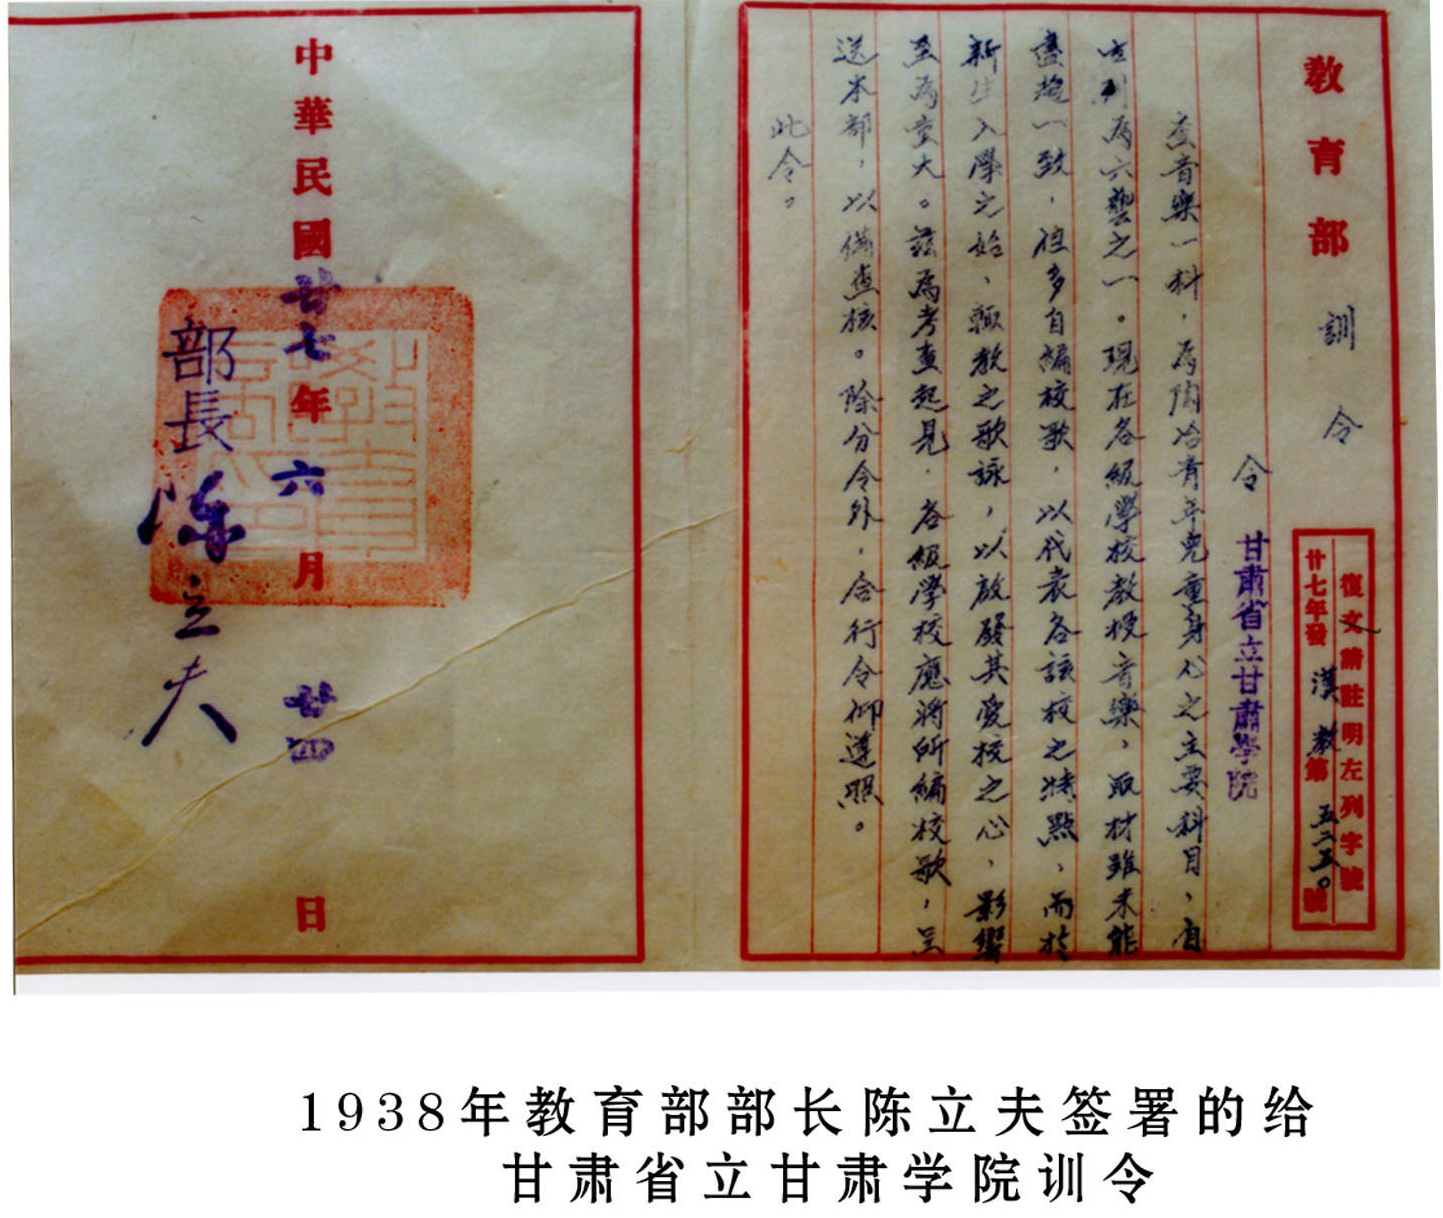 教育部訓令
復文請註明左列字號
廿七年發漢教第五二五〇號
令甘肅省立甘肅學院
查音樂一科，為陶冶青年兒童身心之主要科目，自
古列為六藝之一。現在各級學校教授音樂，取材雖未能
盡趨一致，但多自編校歌，以代表各該校之特點，而於
新生入學之始，輒教之歌詠，以啟發其愛校之心，影響
至為重大。茲為考查起見，各級學校應將所編校歌，呈
送本部，以備查核。除分令外，合行令仰遵照。
此令。
中華民國廿七年六月廿四日
部長陳立夫
1938年教育部部长陈立夫签署的给
甘肃省立甘肃学院训令